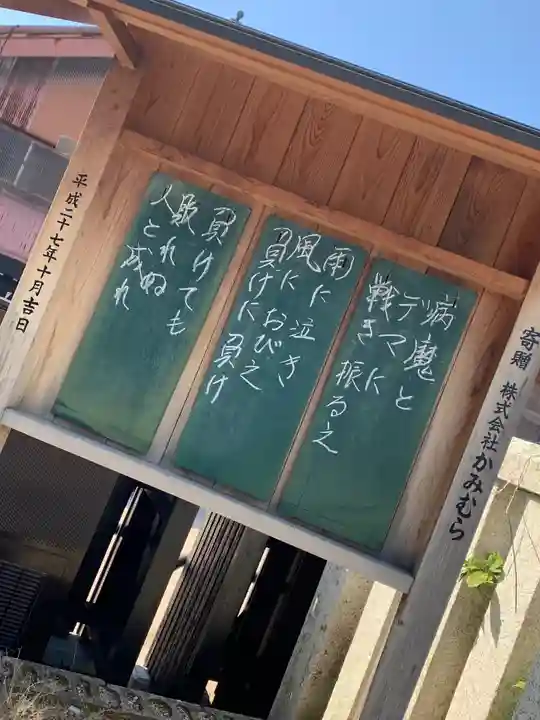 寄贈 株式会社かみむら
病魔と
デマに
戦き振る之
雨に泣き
風におびえ
負けに負け
負けても
厭れぬ
人と成れ
平成二十七年十月吉日